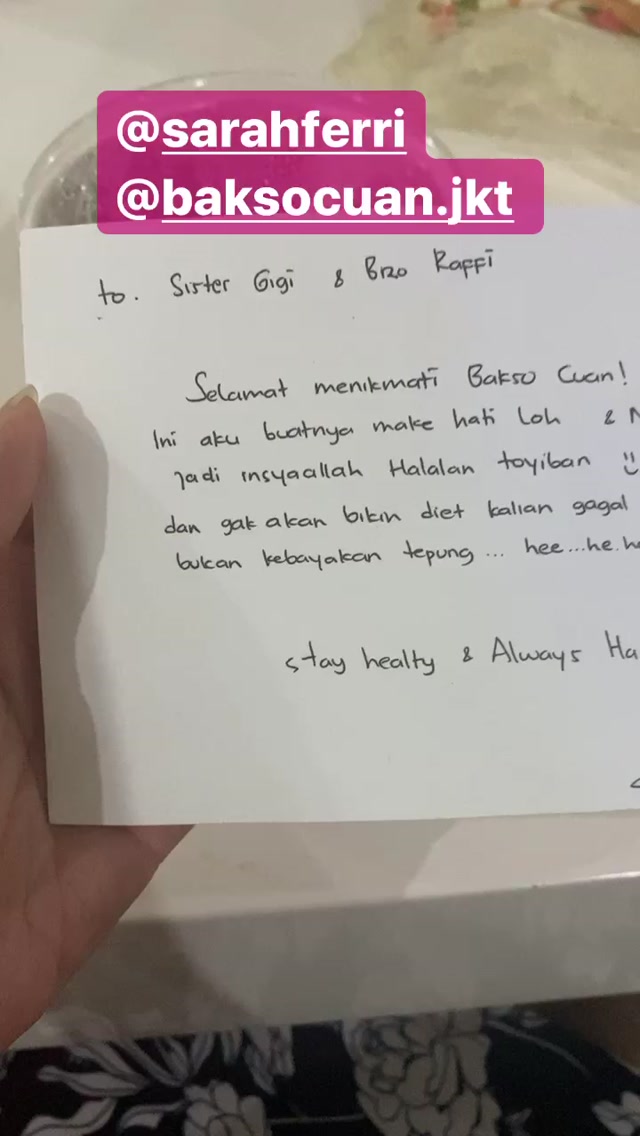 @sarahferri
@baksocuan.jkt
to. Sister Gigi & Bro Raffi
Selamat menikmati Bakso Cuan!
Ini aku buatnya make hati Loh &
jadi insyaallah Halalan toyiban
dan gak akan bikin diet kalian gagal
bukan kebayakan tepung ... hee...he.
stay healty & Always